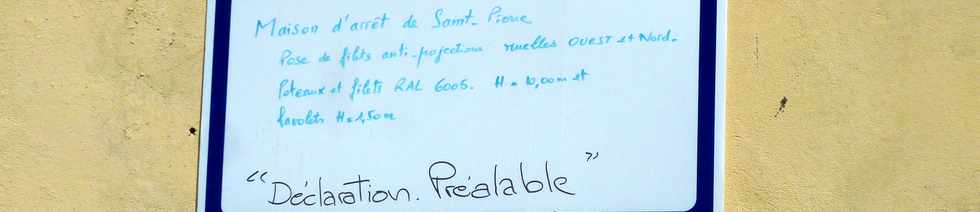 Maison d'arrêt de Saint-Pierre
Pose de filets anti-projections ruelles OUEST et Nord.
Poteaux et filets RAL 6005. H = 10,00m et
bavolets H = 1,50m
“Déclaration. Préalable”